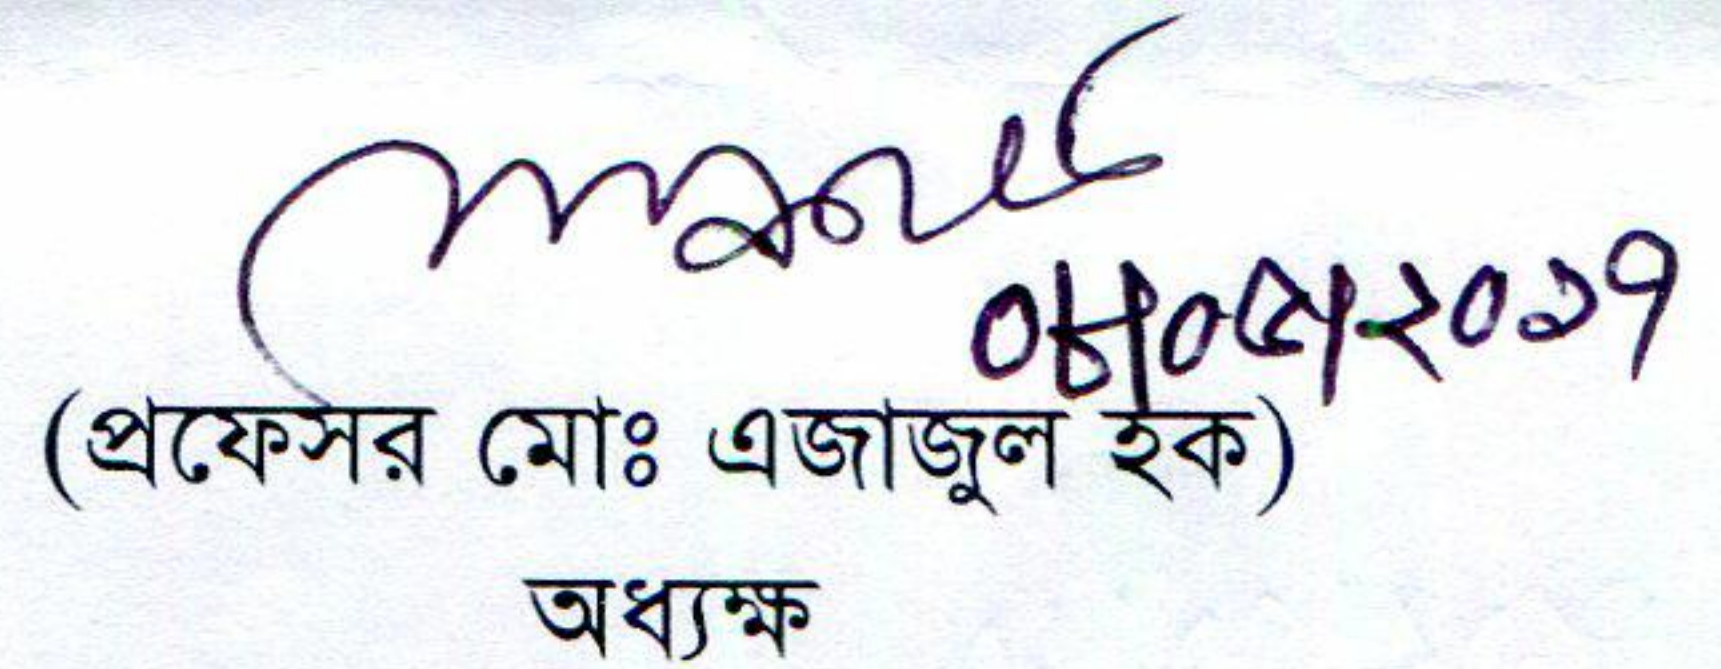 ০৮/০৫/২০১৭
(প্রফেসর মোঃ এজাজুল হক)
অধ্যক্ষ